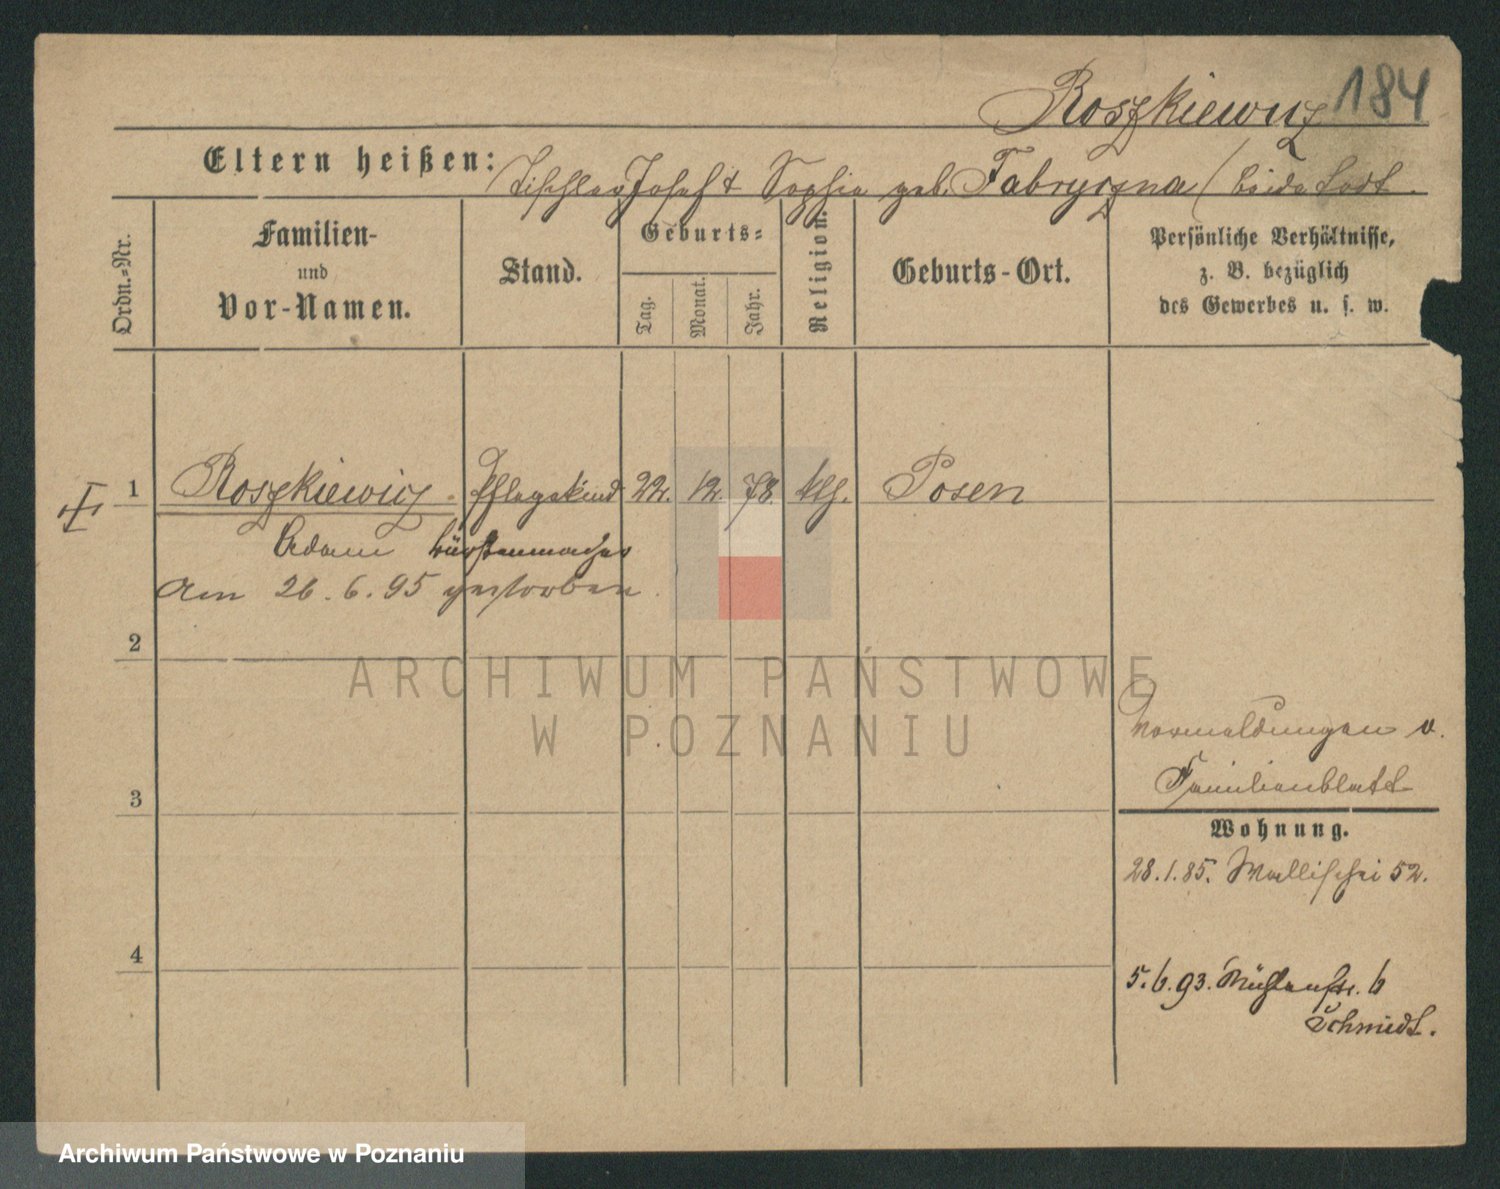 Roszkiewicz 184
Eltern heißen: Tischler Josef & Sophie geb. Fabryczna (beide todt.
Ordn.-Nr.
Familien-
und
Vor-Namen.
Stand.
Geburts-
Tag.
Monat.
Jahr.
Religion.
Geburts-Ort.
Persönliche Verhältnisse,
z. B. bezüglich
des Gewerbes u. s. w.
1 Roszkiewicz. Pflegekind 22. 12. 78. kth. Posen
Adam Bürstenmacher
am 26.6.95 gestorben.
2
Vormeldungen v.
Familienblatt
3
Wohnung.
28.1.85. Wallischei 52.
4
5.6.93. Mühlenstr. 6
Schmidt.
ARCHIWUM PAŃSTWOWE
W POZNANIU
Archiwum Państwowe w Poznaniu